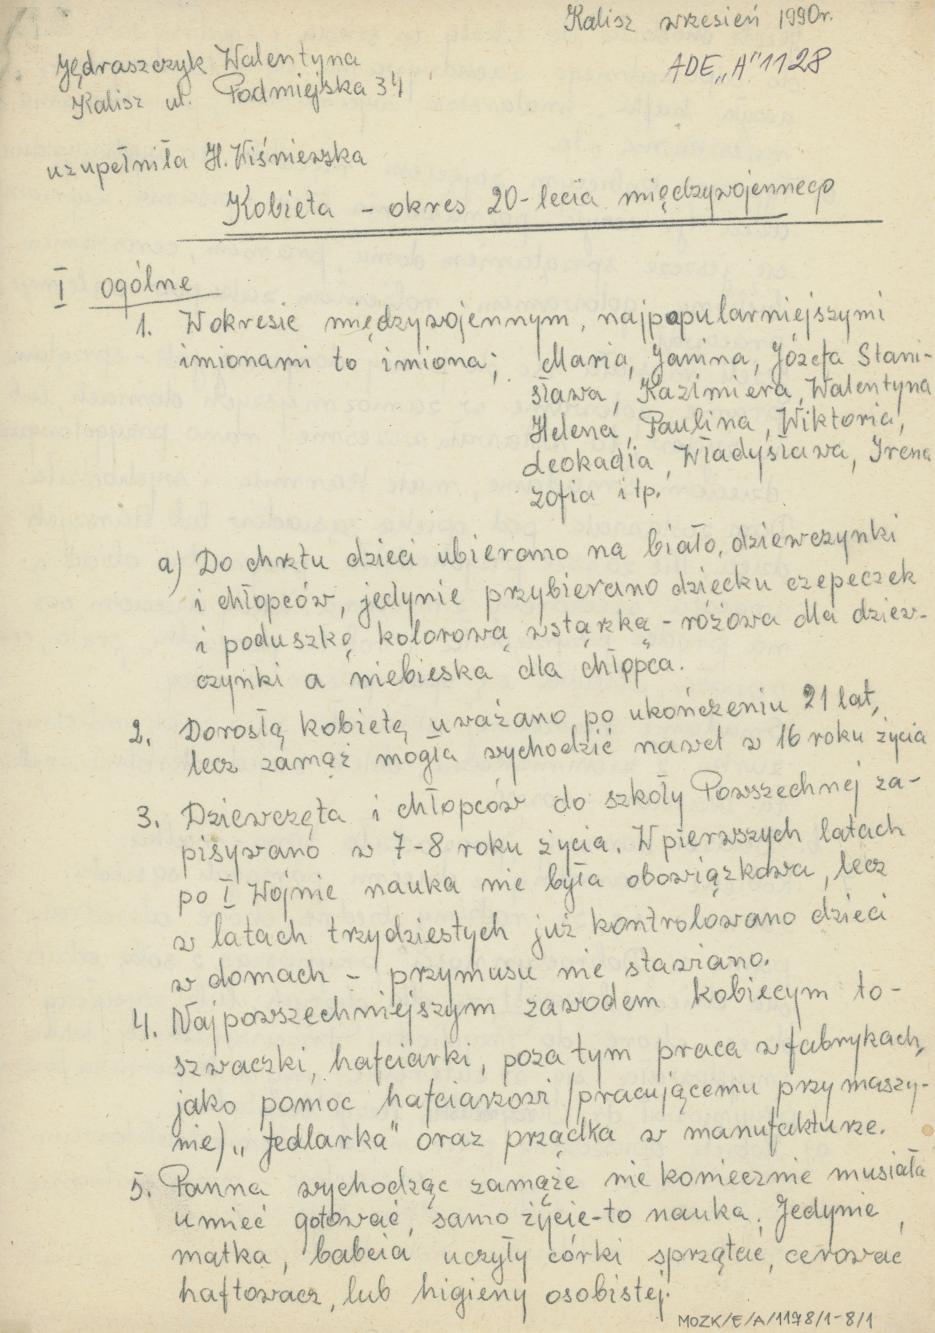 Kalisz wrzesień 1990r.
ADE „A" 1128
Jędraszczyk Walentyna
Kalisz ul. Podmiejska 34
uzupełniła H. Wiśniewska
Kobieta - okres 20-lecia międzywojennego
I ogólne
1. W okresie międzywojennym, najpopularniejszymi
imionami to imiona; Maria, Janina, Józefa Stani-
sława, Kazimiera, Walentyna
Helena, Paulina, Wiktoria,
Leokadia, Władysława, Irena
Zofia itp.
a) Do chrztu dzieci ubierano na biało, dziewczynki
i chłopców, jedynie przybierano dziecku czepeczek
i poduszkę kolorową wstążką - różowa dla dziew-
czynki a niebieska dla chłopca.
2. Dorosłą kobietę uważano po ukończeniu 21 lat,
lecz zamąż mogła wychodzić nawet w 16 roku życia
3. Dziewczęta i chłopców do szkoły Powszechnej za-
pisywano w 7-8 roku życia. W pierwszych latach
po I Wojnie nauka nie była obowiązkowa, lecz
w latach trzydziestych już kontrolowano dzieci
w domach - przymusu nie stawiano.
4. Najpowszechniejszym zawodem kobiecym to -
szwaczki, hafciarki, poza tym praca w fabrykach,
jako pomoc hafciarzowi /pracującemu przy maszy-
nie) „fedlarka" oraz prządka w manufakturze.
5. Panna wychodząc zamąże nie koniecznie musiała
umieć gotować, samo życie-to nauka. Jedynie
matka, babcia uczyły córki sprzątać, cerować
haftowacz, lub higieny osobistej.
MOZK/E/A/1178/1-8/1